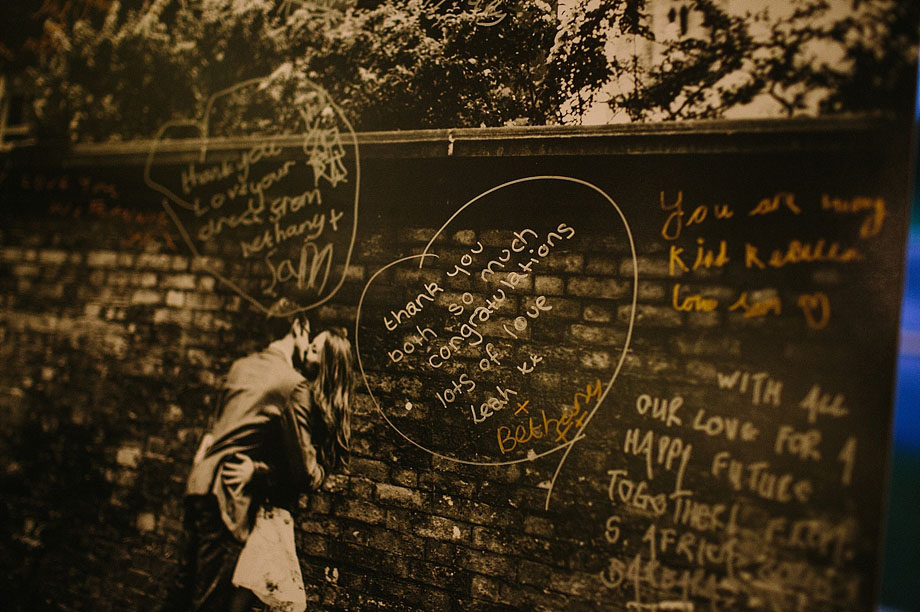 thank you
Love your
dress from
bethany +
Sam
Love You
thank you
both so much
congratulations
lots of love
Leah xx
+
Bethany
xx
You are
Kind Rebecca
love
WITH ALL
OUR LOVE FOR A
HAPPY FUTURE
TOGETHER! FROM
S. AFRICA